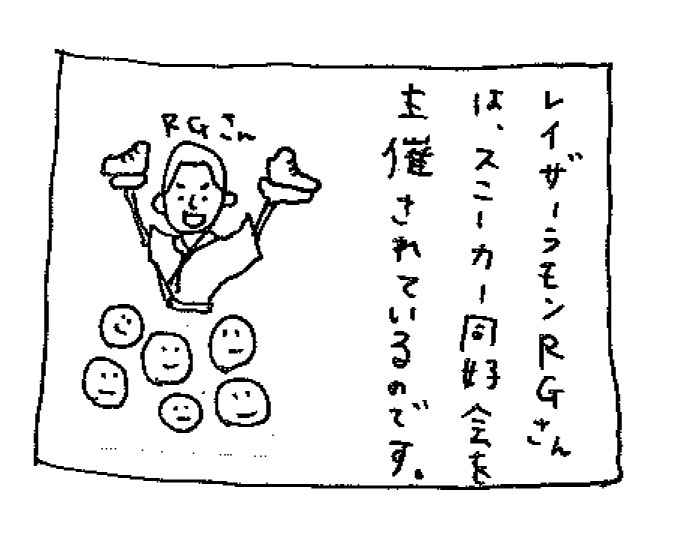 レイザーラモンRGさん
は、スニーカー同好会を
主催されているのです。
RGさん